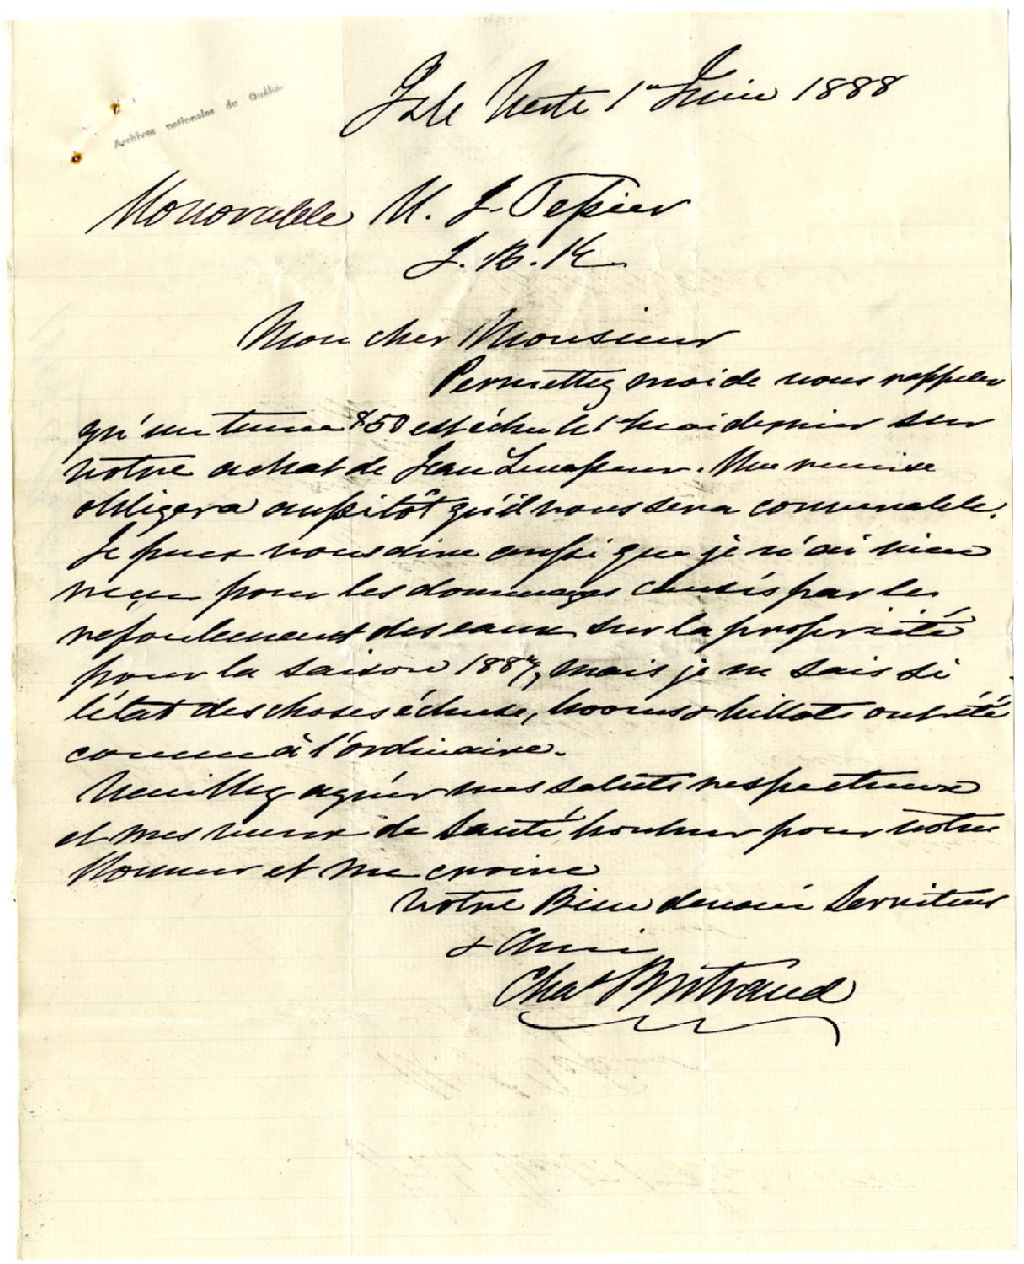 Archives nationales du Québec
Isle Verte 1er Juin 1888
Honorable U. J. Tessier
J. B. R
Mon cher Monsieur
Permettez moi de vous rappeler
qu'un terme $50 est échu le 1er mai dernier sur
votre achat de Jean Levasseur. Une remise
obligera aussitôt qu'il vous sera convenable.
Je puis vous dire aussi que je n'ai rien
reçu pour les dommages causés par le
refoulement des eaux sur la propriété
pour la saison 1887, mais je ne sais si
l'état des choses écluse, booms & billots ont été
comme à l'ordinaire.
Veuillez agréer mes saluts respectueux
et mes vœux de santé bonheur pour votre
Honneur et me croire
Votre Bien dévoué Serviteur
& Ami
Chas Bertrand